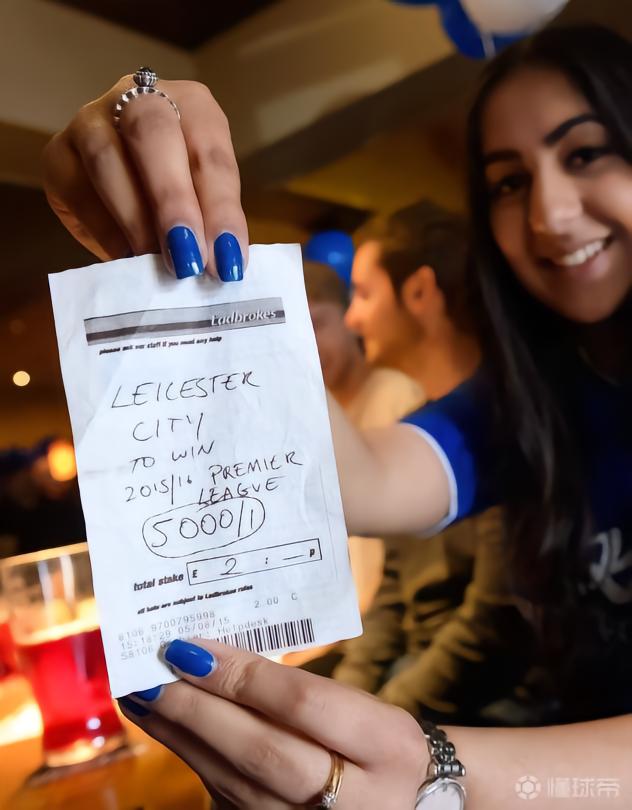 Ladbrokes
please ask our staff if you need any help
LEICESTER
CITY
TO WIN
2015/16 PREMIER
LEAGUE
5000/1
total stake £ 2 : — p
all bets are subject to Ladbrokes rules
2.00 C
8106 9700795998
15:18:29 05/08/15
58106 Helpdesk
懂球帝